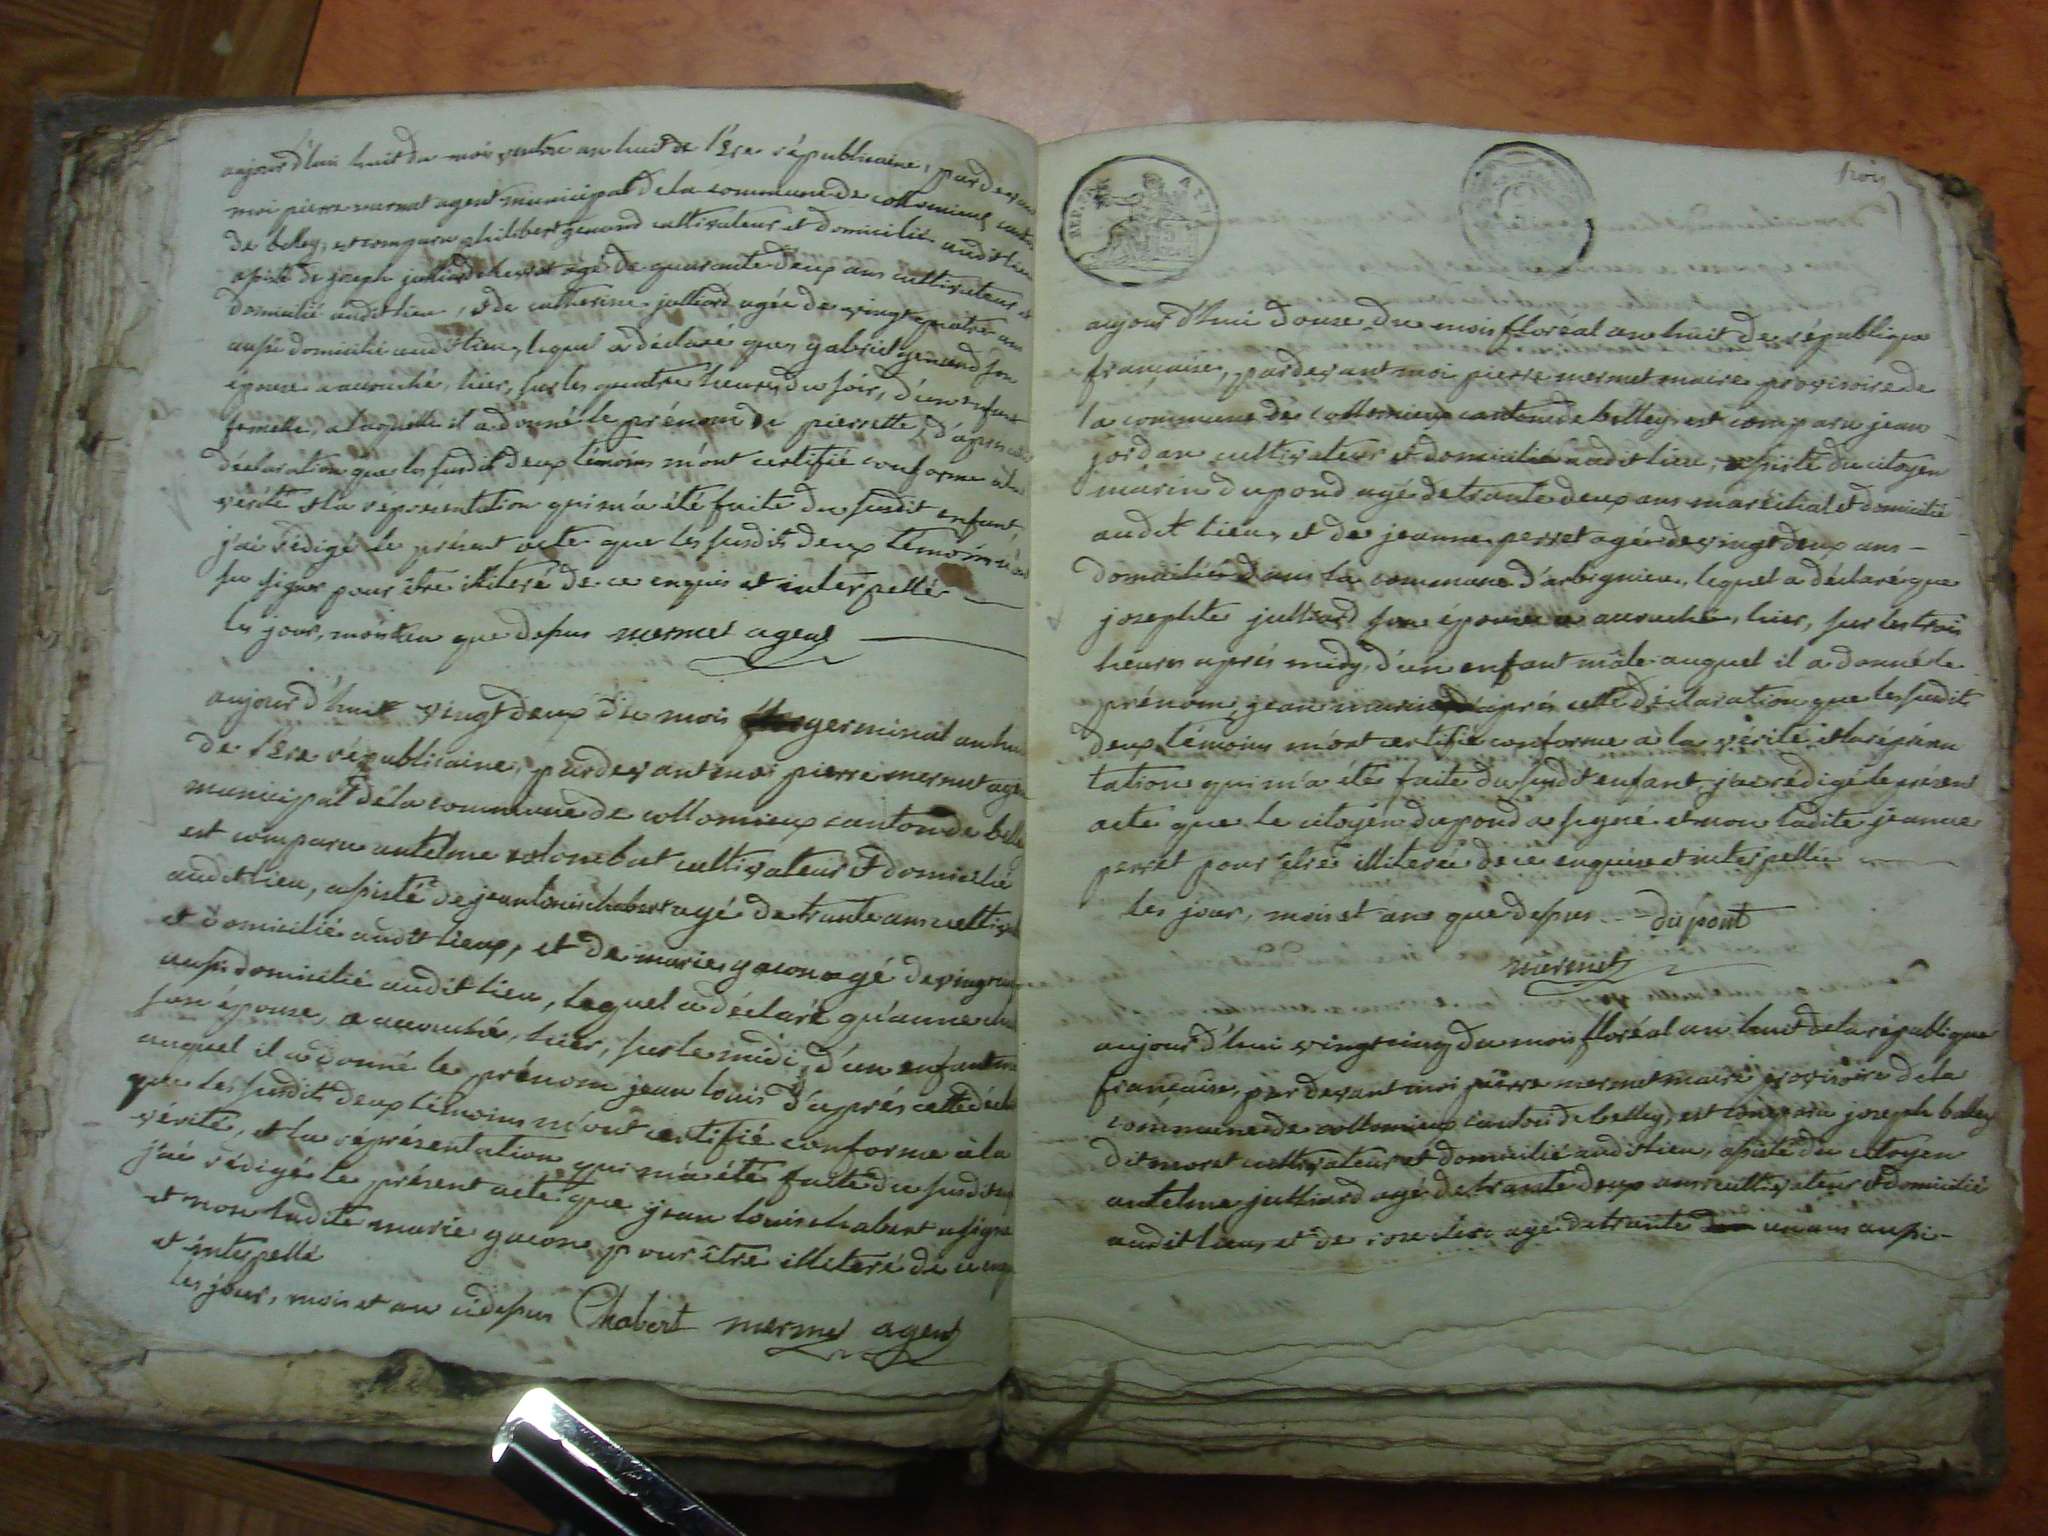 aujourd'hui huit du mois ventose an huit de l'Ere républicaine, pardevant
moi pierre mermet agent municipal de la commune de collomieux canton
de belley, est comparu philibert genand cultivateur et domicilié audit lieu
assisté de joseph julliard agé de quarante deux ans cultivateur et
domicilié audit lieu, et de catherine julliard agée de vingt quatre ans
aussi domicilié audit lieu, lequel a déclaré que, gabriel genand son
épouse a accouché, hier, sur les quatre heures du soir, d'un enfant
femelle, a laquelle il a donné le prénom de pierrette, d'après cette
déclaration que les susdit deux témoins m'ont certifié conforme a la
vérité et la réprésentation qui m'a été faite du susdit enfant,
j'ai rédigé le présent acte que les susdits deux témoins n'ont
su signer pour être illiteré de ce enquis et interpellés
les jour, mois et an que dessus mermet agent
aujourd'hui vingt deux du mois germinal an huit
de l'Ere républicaine, pardevant moi pierre mermet agent
municipal de la commune de collomieux canton de belley
est comparu antelme colombet cultivateur et domicilié
audit lieu, assisté de jean louis chabert agé de trante ans cultivat
et domicilié audit lieux, et de marie gacon agé de vingt
aussi domicilié audit lieu, lequel a déclaré qu'anne
son épouse, a accouché, hier, sur le midi, d'un enfant
auquel il a donné le prénom jean louis d'après cette décla
que les susdit deux témoins m'ont certifié conforme à la
vérité, et la réprésentation qui m'a été faite du susdit enf
j'ai rédigé le présent acte que jean louis chabert a signé
et non ladite marie gacon pour être illiteré de ce enq
et interpellé
les jour, mois et an cidessus Chabert mermet agent
REP. FRA.
trois
aujourd'hui douze du mois floréal an huit de république
française, pardevant moi pierre mermet maire provisoire de
la commune de collomieux canton de belley, est comparu jean
jordan cultivateur et domicilié audit lieu, assisté du citoyen
marin dupond agé de trante deux ans maréchal et domicilié
audit lieu, et de jeanne perret agée de vingt deux ans -
domicilié dans la commune d'arbignieu, lequel a déclaré que
josephte julliard son épouse a accouché, hier, sur les trois
heures après midy, d'un enfant mâle auquel il a donné le
prénom, jean marin d'après cette déclaration que les susdit
deux témoins m'ont certifié conforme a la vérité, et la réprésen
tation qui m'a été faite du susdit enfant, j'ai rédigé le présent
acte que le citoyen dupond a signé et non ladite jeanne
perret pour être illiterée de ce enquise et interpellée
les jour, mois et an que dessus - dupont
mermet
aujourd'hui vingt cinq du mois floréal an huit de la république
française, pardevant moi pierre mermet maire provisoire de la
commune de collomieux canton de belley, est comparu joseph balley
dit moret cultivateur et domicilié audit lieu, assisté du citoyen
antelme julliard agé de trante deux ans cultivateur et domicilié
audit lieu, et de rose agé de trante un ans aussi -